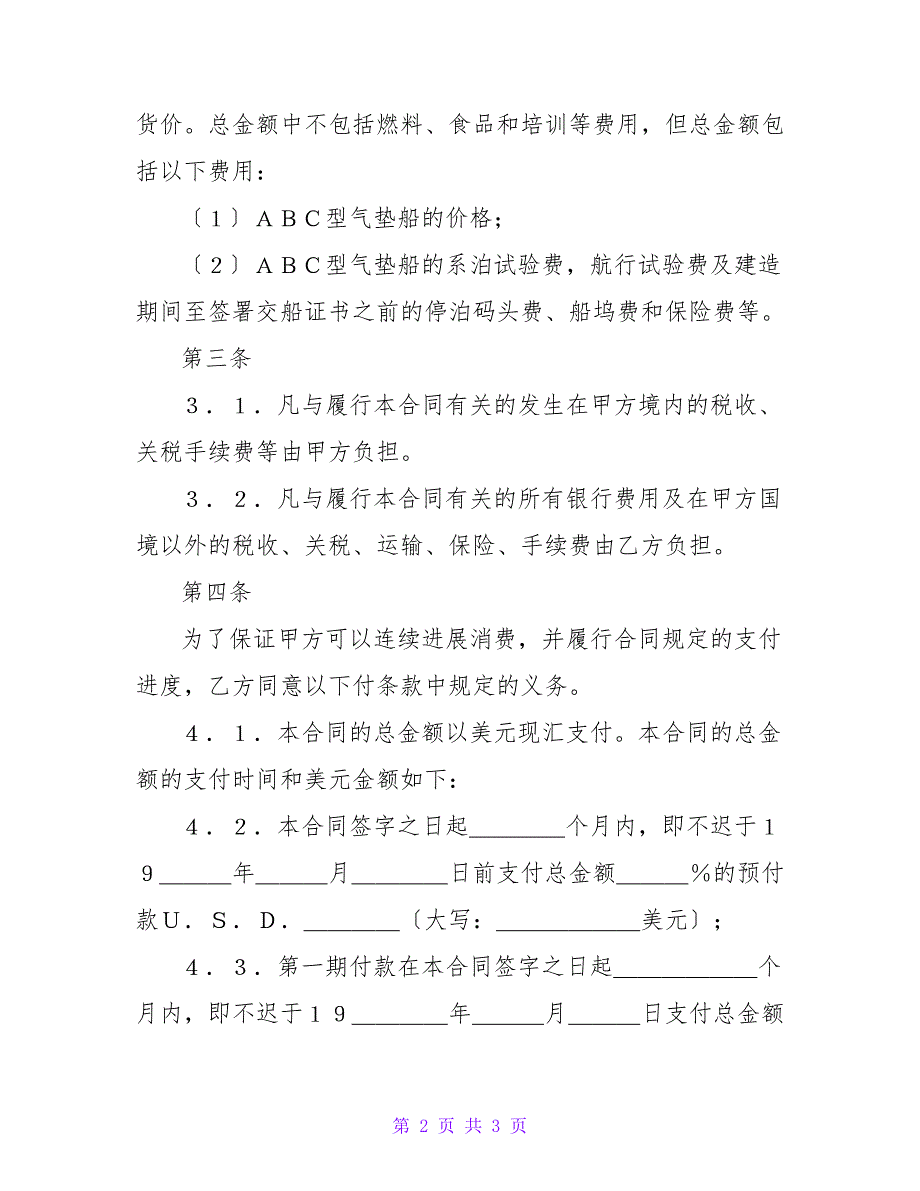 货价。总金额中不包括燃料、食品和培训等费用，但总金额包
括以下费用：
〔１〕ＡＢＣ型气垫船的价格；
〔２〕ＡＢＣ型气垫船的系泊试验费，航行试验费及建造
期间至签署交船证书之前的停泊码头费、船坞费和保险费等。
第三条
３．１．凡与履行本合同有关的发生在甲方境内的税收、
关税手续费等由甲方负担。
３．２．凡与履行本合同有关的所有银行费用及在甲方国
境以外的税收、关税、运输、保险、手续费由乙方负担。
第四条
为了保证甲方可以连续进展消费，并履行合同规定的支付
进度，乙方同意以下付条款中规定的义务。
４．１．本合同的总金额以美元现汇支付。本合同的总金
额的支付时间和美元金额如下：
４．２．本合同签字之日起________个月内，即不迟于１
９______年______月________日前支付总金额______％的预付
款Ｕ．Ｓ．Ｄ．________〔大写：____________美元〕；
４．３．第一期付款在本合同签字之日起____________个
月内，即不迟于１９________年______月______日支付总金额
第 2 页 共 3 页